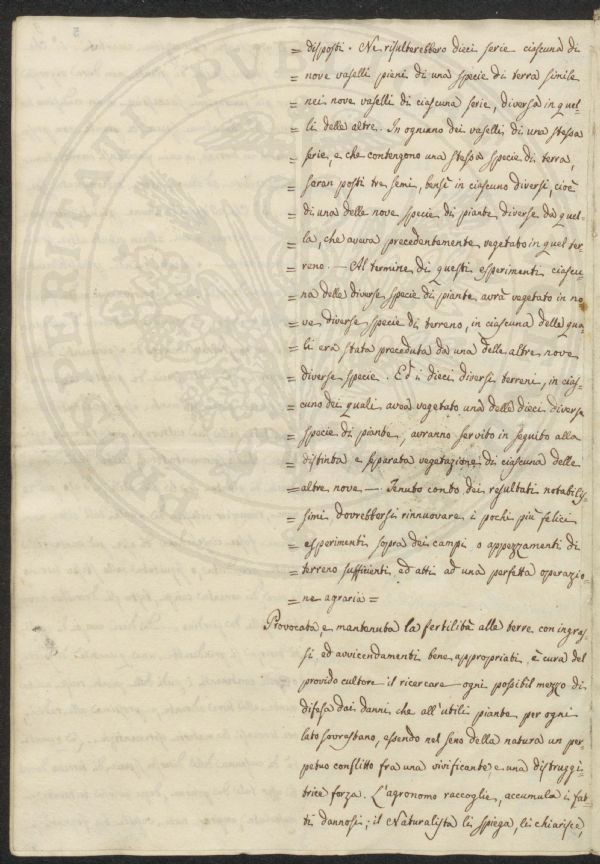 = disposti. Ne risulterebbero dieci serie ciascuna di
= nove vaselli pieni di una specie di terra simile
= nei nove vaselli di ciascuna serie, diversa in quel-
= li delle altre. In ognuno dei vaselli di una stessa
= serie, e che contengono una stessa specie di terra,
= saran posti tre semi, bensì in ciascuno diversi, cioè
= di una delle nove specie di piante diverse da quel-
= la, che aveva precedentemente vegetato in quel ter-
= reno. — Al termine di questi esperimenti ciascu-
= na delle diverse specie di piante avrà vegetato in no
= ve diverse specie di terreno, in ciascuna delle qua-
= li era stata preceduta da una delle altre nove
= diverse specie. Ed i dieci diversi terreni, in cias-
= cuno dei quali avea vegetato una delle dieci diverse
= specie di piante, avranno servito in seguito alla
= distinta e separata vegetazione di ciascuna delle
= altre nove — Tenuto conto dei resultati notabilis-
= simi dovrebbersi rinnuovare i pochi più felici
= esperimenti sopra dei campi o appezzamenti di
= terreno sufficienti, ed atti ad una perfetta operazio-
= ne agraria =
Provocata, e mantenuta la fertilità alle terre con ingras-
si, ed avvicendamenti bene appropriati, è cura del
provido cultore il ricercare ogni possibil mezzo di
difesa dai danni, che all'utili piante per ogni
lato sovrastano, essendo nel seno della natura un per-
petuo conflitto fra una vivificante, e una distruggi-
trice forza. L'agronomo raccoglie, accumula i fat-
ti dannosi; il Naturalista li spiega, li chiarisce,
PERITI
PVB